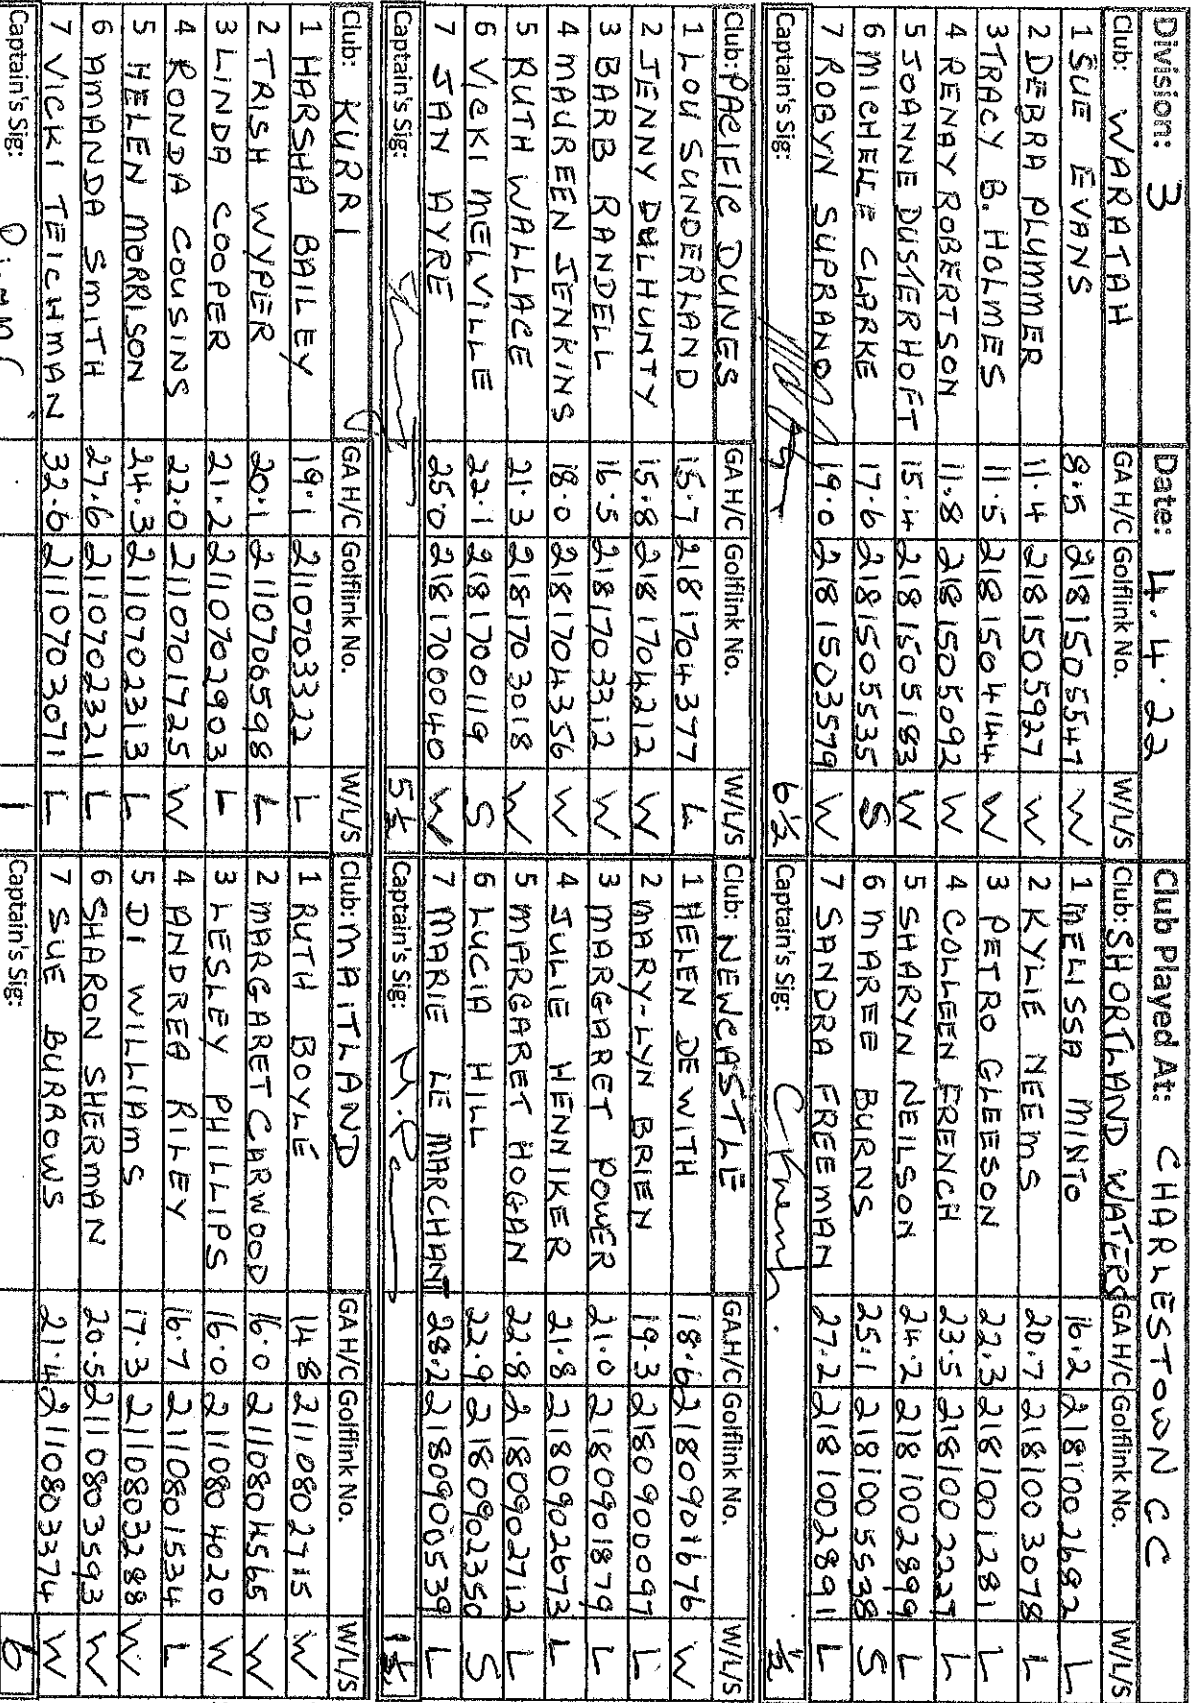 Division: 3 Date: 4.4.22 Club Played At: CHARLESTOWN CC
Club: WARATAH GA H/C Golflink No. W/L/S Club: SHORTLAND WATERS GA H/C Golflink No. W/L/S
1 SUE EVANS 8.5 2181505547 W 1 MELISSA MINTO 16.2 2181002682 L
2 DEBRA PLUMMER 11.4 2181505927 W 2 KYLIE NEEMS 20.7 2181003078 L
3 TRACY B. HOLMES 11.5 2181504144 W 3 PETRO GLEESON 22.3 2181001281 L
4 RENAY ROBERTSON 11.8 2181505092 W 4 COLLEEN FRENCH 23.5 2181002227 L
5 JOANNE DUSTERHOFT 15.4 2181505183 W 5 SHARYN NEILSON 24.2 2181002899 L
6 MICHELLE CLARKE 17.6 2181505535 S 6 MAREE BURNS 25.1 2181005538 S
7 ROBYN SUPRANO 19.0 2181503579 W 7 SANDRA FREEMAN 27.2 2181002891 L
Captain's Sig: 6½ Captain's Sig: C French. ½
Club: PACIFIC DUNES GA H/C Golflink No. W/L/S Club: NEWCASTLE GA H/C Golflink No. W/L/S
1 LOU SUNDERLAND 15.7 2181704377 L 1 HELEN DE WITH 18.6 2180901676 W
2 JENNY DULHUNTY 15.8 2181704212 W 2 MARY-LYN BRIEN 19.3 2180900097 L
3 BARB RANDELL 16.5 2181703312 W 3 MARGARET POWER 21.0 2180901879 L
4 MAUREEN JENKINS 18.0 2181704356 W 4 JULIE HENNIKER 21.8 2180902673 L
5 RUTH WALLACE 21.3 2181703018 W 5 MARGARET HOGAN 22.8 2180902712 L
6 VICKI MELVILLE 22.1 2181700119 S 6 LUCIA HILL 22.9 2180902350 S
7 JAN AYRE 25.0 2181700040 W 7 MARIE LE MARCHANT 28.2 2180900539 L
Captain's Sig: 5½ Captain's Sig: 1½
Club: KURRI GA H/C Golflink No. W/L/S Club: MAITLAND GA H/C Golflink No. W/L/S
1 HARSHA BAILEY 19.1 2110703322 L 1 RUTH BOYLE 14.8 2110802715 W
2 TRISH WYPER 20.1 2110706598 L 2 MARGARET CARWOOD 16.0 2110804565 W
3 LINDA COOPER 21.2 2110702903 L 3 LESLEY PHILLIPS 16.0 2110804020 W
4 RONDA COUSINS 22.0 2110701725 W 4 ANDREA RILEY 16.7 2110801534 L
5 HELEN MORRISON 24.3 2110702313 L 5 DI WILLIAMS 17.3 2110803288 W
6 AMANDA SMITH 27.6 2110702321 L 6 SHARON SHERMAN 20.5 2110803593 W
7 VICKI TEICHMAN 32.6 2110703071 L 7 SUE BURROWS 21.4 2110803374 W
Captain's Sig: 1 Captain's Sig: 6